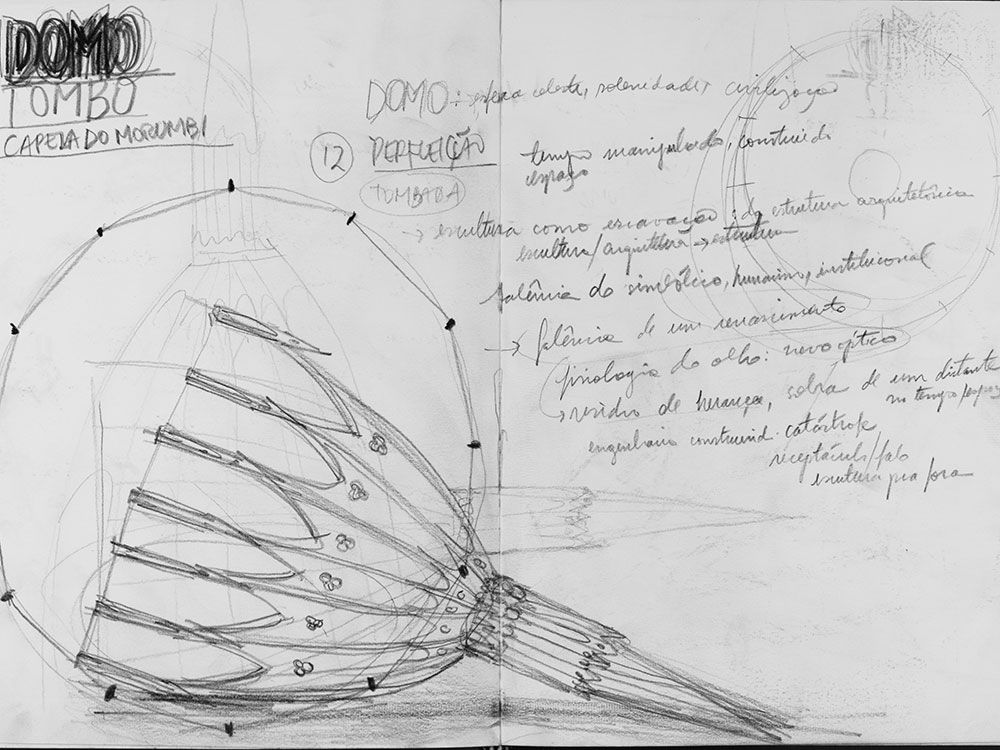 DOMO
TOMBO
CAPELA DO MORUMBI
DOMO: esfera celeste, solenidade, civilização
12 PERFLEIÇÃO
TUMBADA
tempo manipulado, construido
espaço
→ escultura como escavação: da estrutura arquitetônica
escultura/arquitetura → estrutura
falência do simbólico, humanismo, institucional
→ falência de um renascimento
fisiologia do olho: nervo óptico
→ resíduo de herança, sobra de um distante
no tempo/espaço
engenharia construind. catástrofe
receptáculo/falo
estrutura pra fora